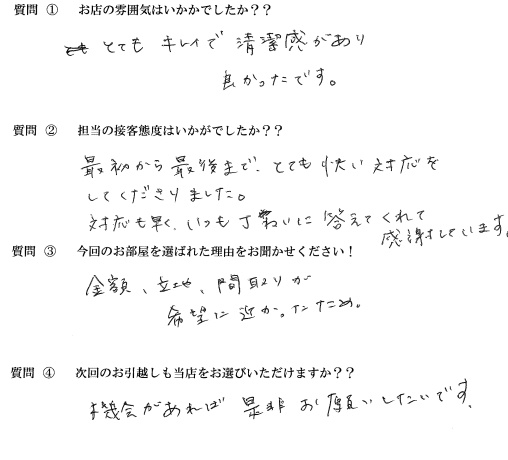 質問 ① お店の雰囲気はいかかでしたか？？
とても キレイで 清潔感があり
良かったです。
質問 ② 担当の接客態度はいかがでしたか？？
最初から最後まで、とても快い対応を
してくださりました。
対応も早く、いつも丁寧に答えてくれて
感謝しています。
質問 ③ 今回のお部屋を選ばれた理由をお聞かせください！
金額、立地、間取りが
希望に近かったため。
質問 ④ 次回のお引越しも当店をお選びいただけますか？？
機会があれば 是非お願いしたいです。